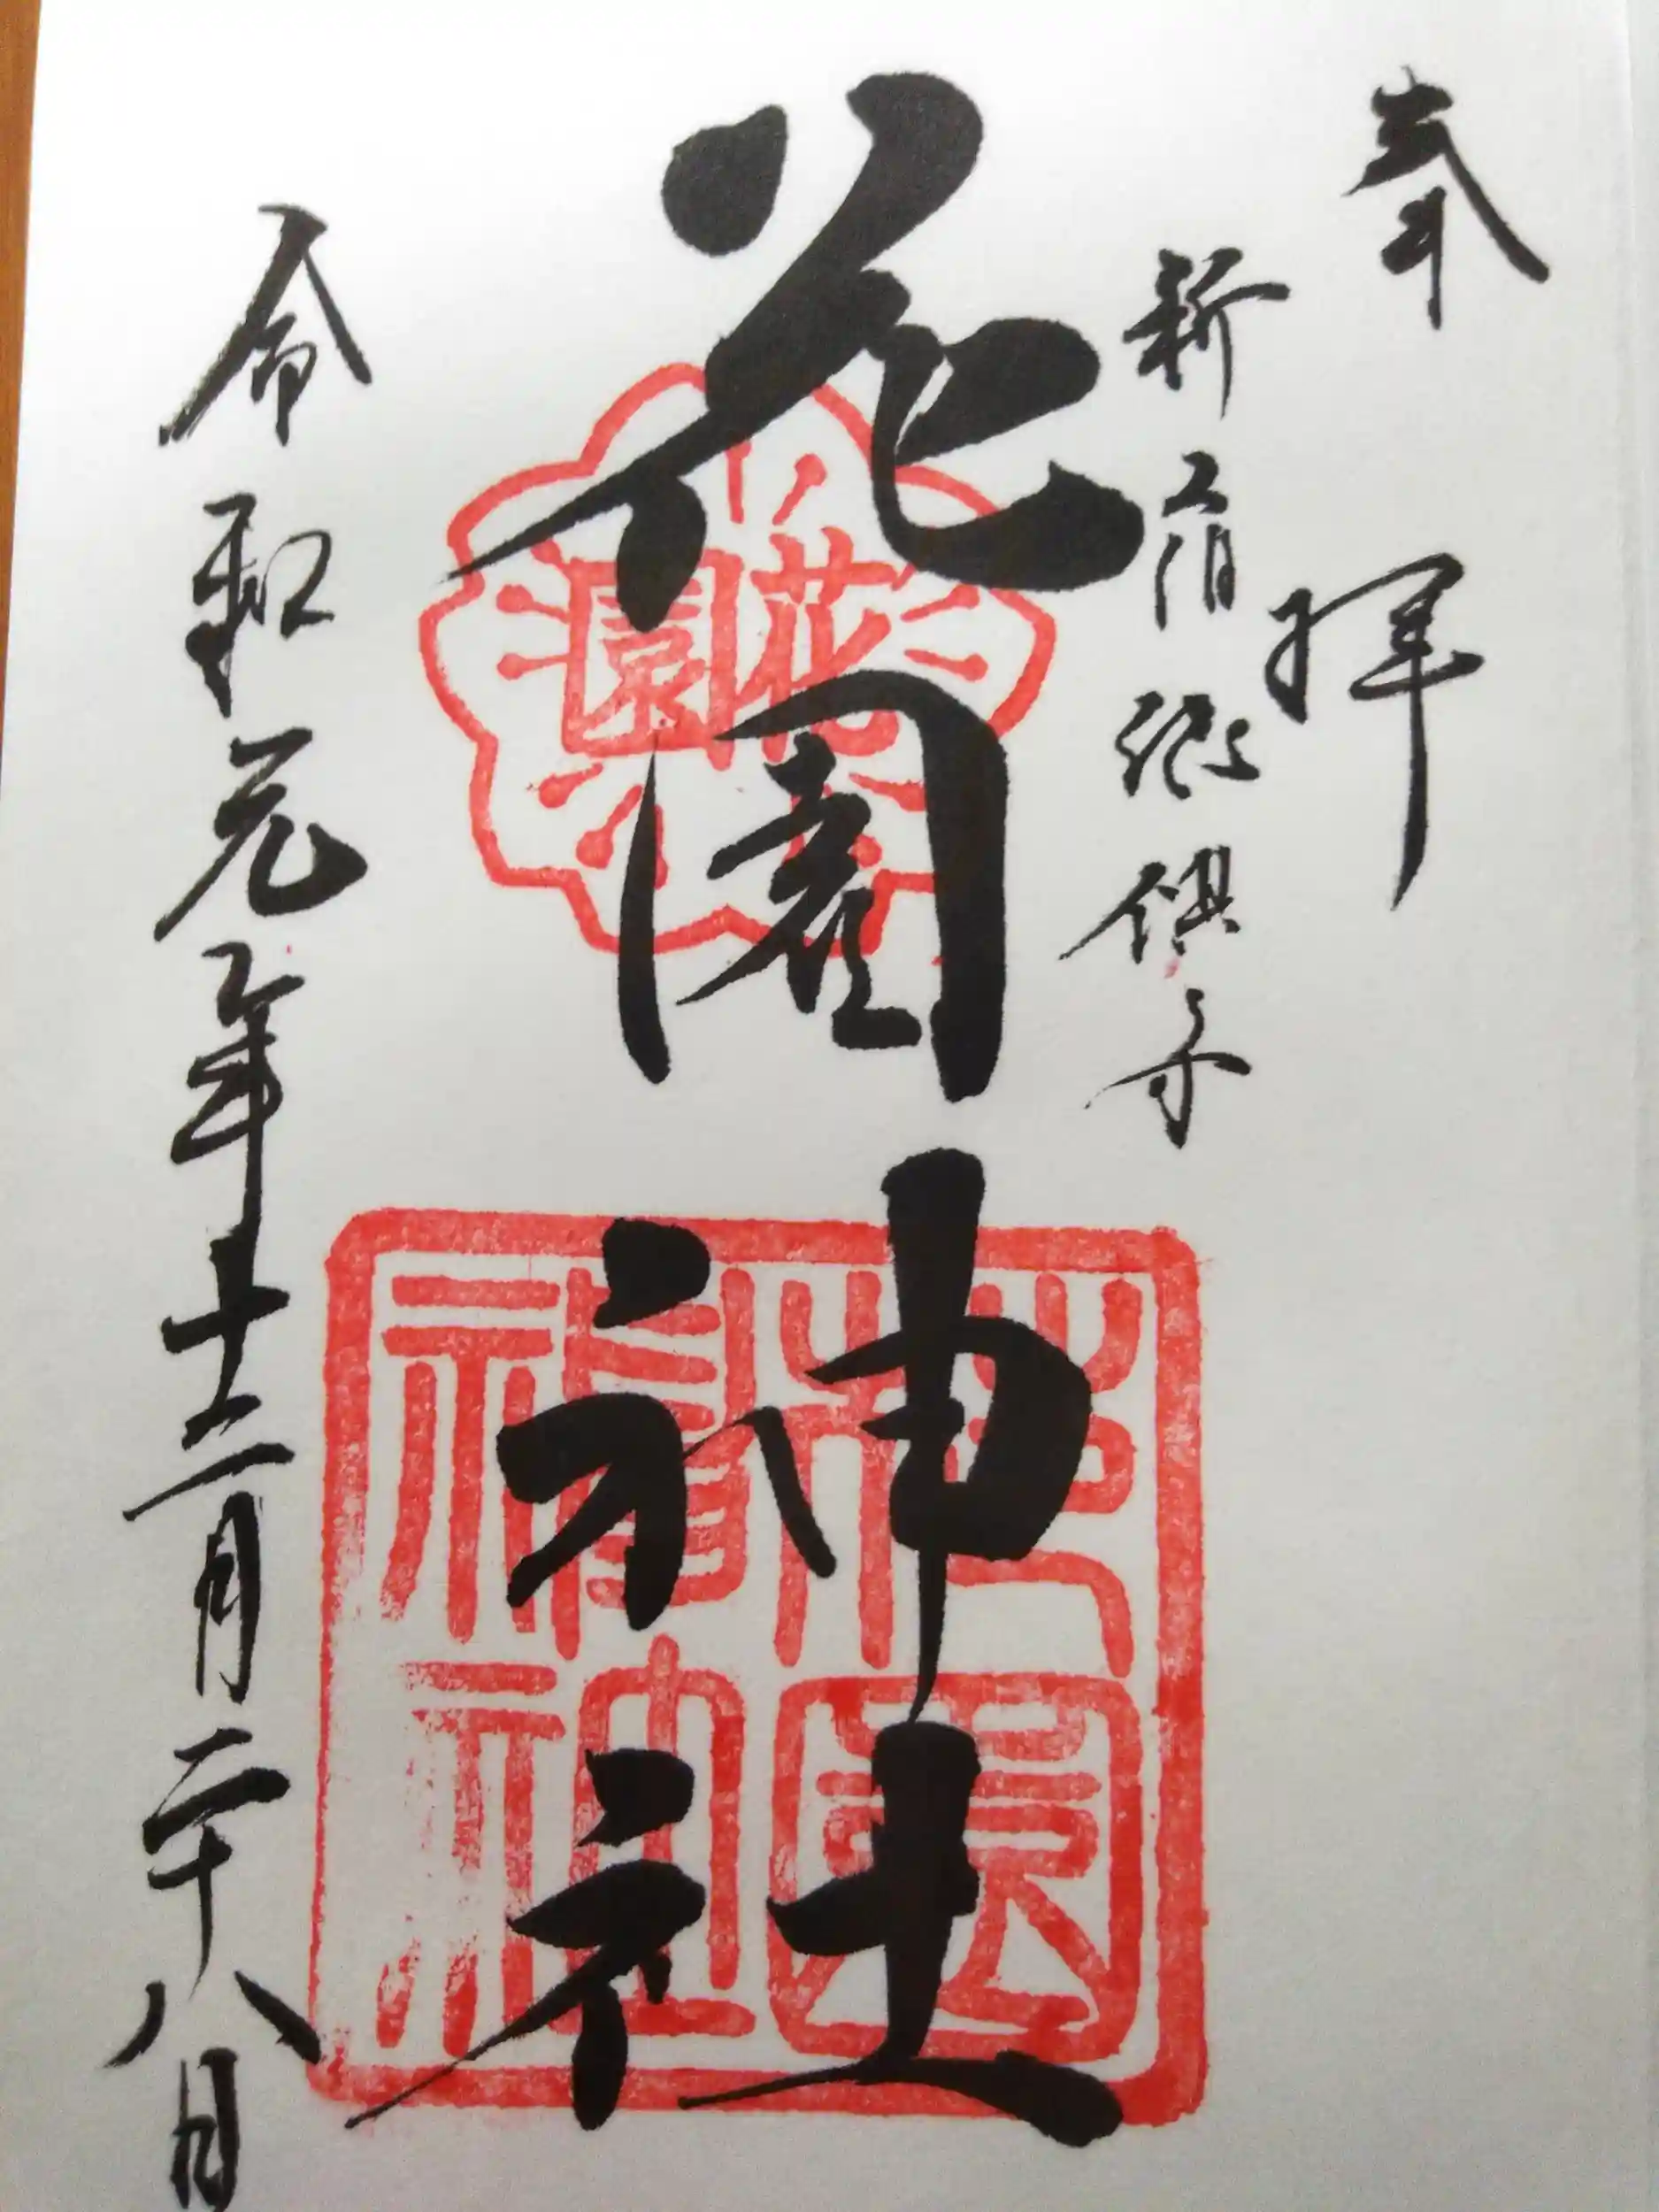 奉拝
新宿総鎮守
花園神社
令和元年十二月二十八日
花園
花園
神社